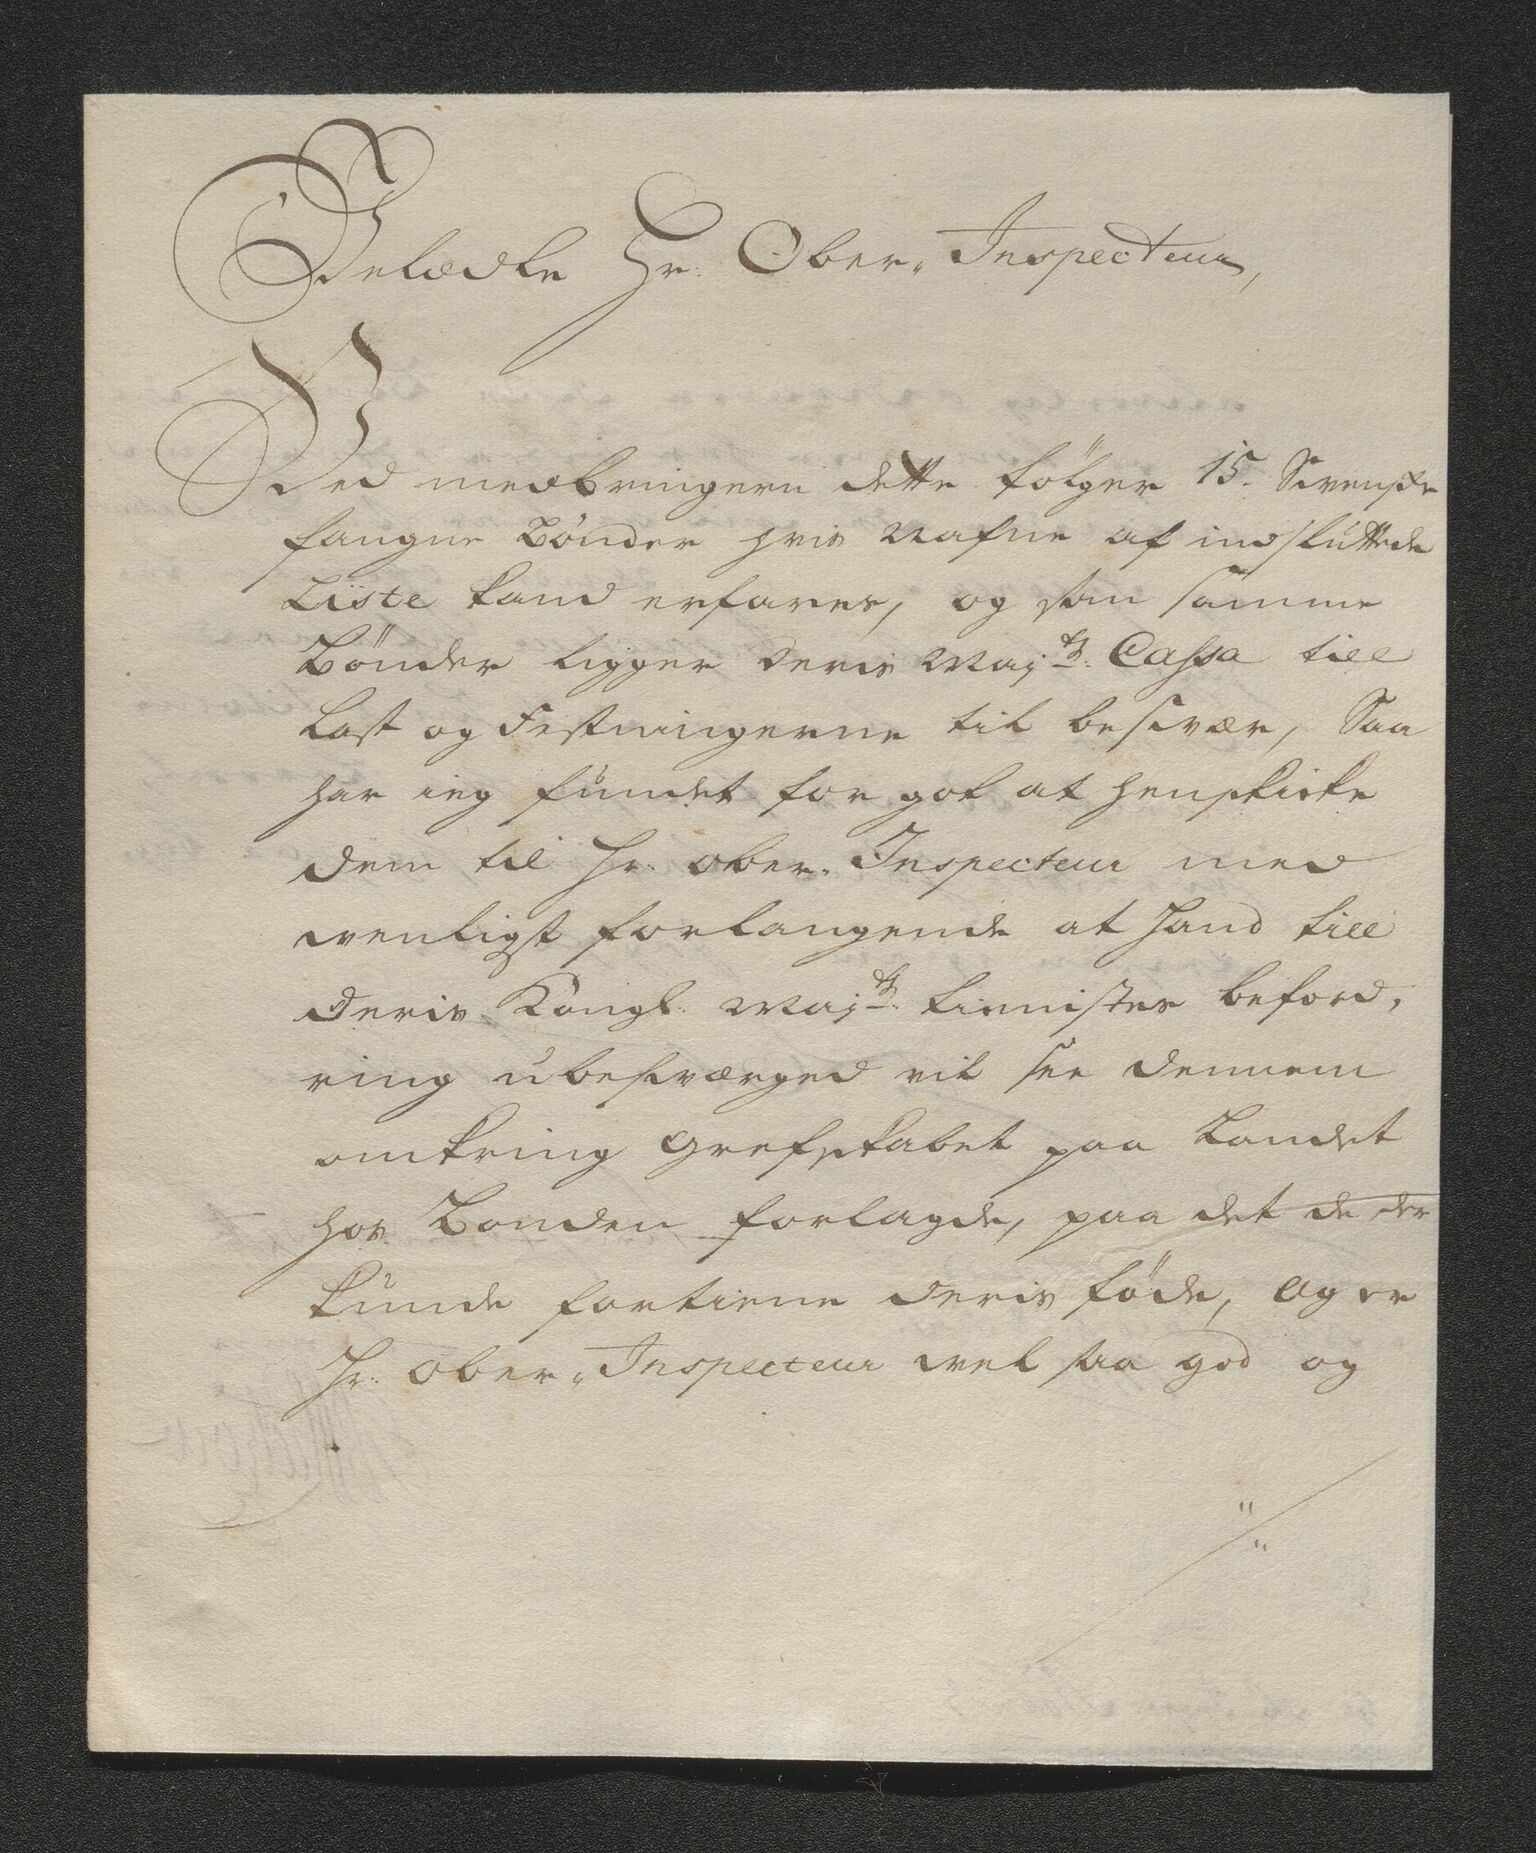 Velædle Hr: Ober„Inspecteur,
Ved medbringern dette følger 15. Svenske
fangne Bönder hvis Nafne af indsluttede
Liste kand erfares, og som samme
Bönder ligger deris Maj:ts Cassa till
Last og Festningerne til besvær, Saa
har ieg fundet for got at henskicke
dem til Hr: Ober„Inspecteur med
venligst forlangende at Hand till
Deris Kongl: Maj:ts tienistes beford,
ring ubesværged vil see dennem
omkring Grefskabet paa Landet
hos Bonden forlagde, paa det de der
kunde fortiene deris føde, Og er
Hr: Ober„Inspecteur vel saa god og